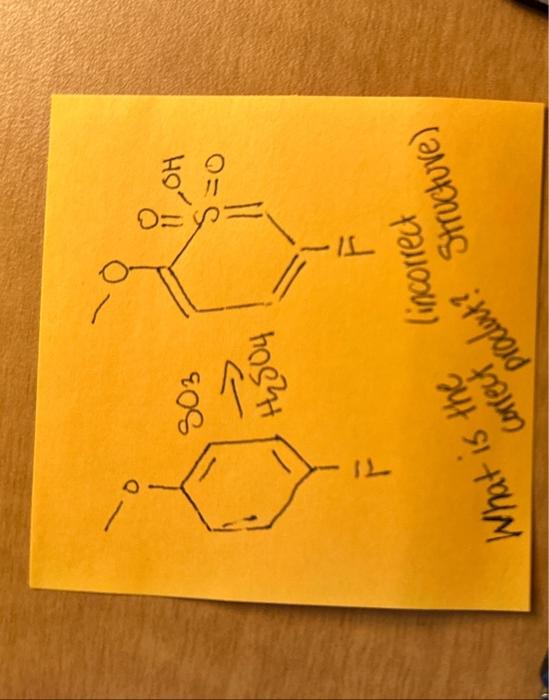 O
SO3
H2SO4
F
O
O
OH
S
=O
F
What is the
correct product?
(incorrect
structure)